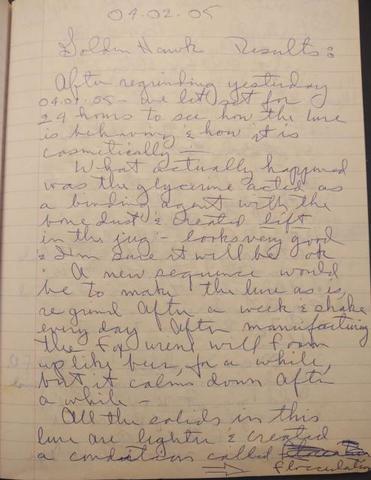 04.02.05
Golden Hawk Results:
After regrinding yesterday
04.01.05 - we let set for
24 hours to see how the lure
is behaving & how it is
cosmetically —
What actually happened
was the glycerine acted as
a binding agent with the
bone dust & created lift
in the jug - looks very good
& I'm sure it will be ok
A new sequence would
be to make the lure as is,
regrind after a week & shake
every day after manufacturing
the Fox urine will foam
up like beer, for a while,
but it calms down after
a while -
All the solids in this
lure are lighter & created
a condition called
flocculation